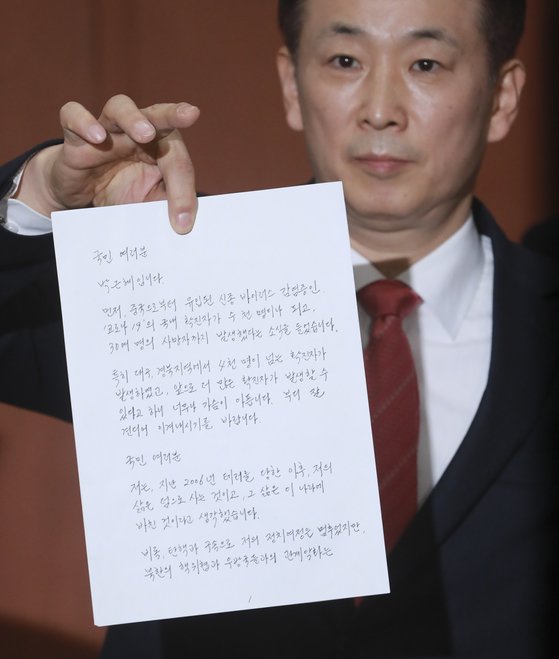 국민 여러분
박근혜입니다.
먼저, 중국으로부터 유입된 신종 바이러스 감염증인
'코로나 19'의 국내 확진자가 수 천 명이나 되고,
30여 명의 사망자까지 발생했다는 소식을 들었습니다.
특히 대구·경북지역에서 4천 명이 넘는 확진자가
발생하였고, 앞으로 더 많은 확진자가 발생할 수
있다고 하니 너무나 가슴이 아픕니다. 부디 잘
견디어 이겨내시기를 바랍니다.
국민 여러분
저는, 지난 2006년 테러를 당한 이후, 저의
삶은 덤으로 사는 것이고, 그 삶은 이 나라에
바친 것이라고 생각했습니다.
비록, 탄핵과 구속으로 저의 정치여정은 멈추었지만,
북한의 핵위협과 우방국들과의 관계악화는
1